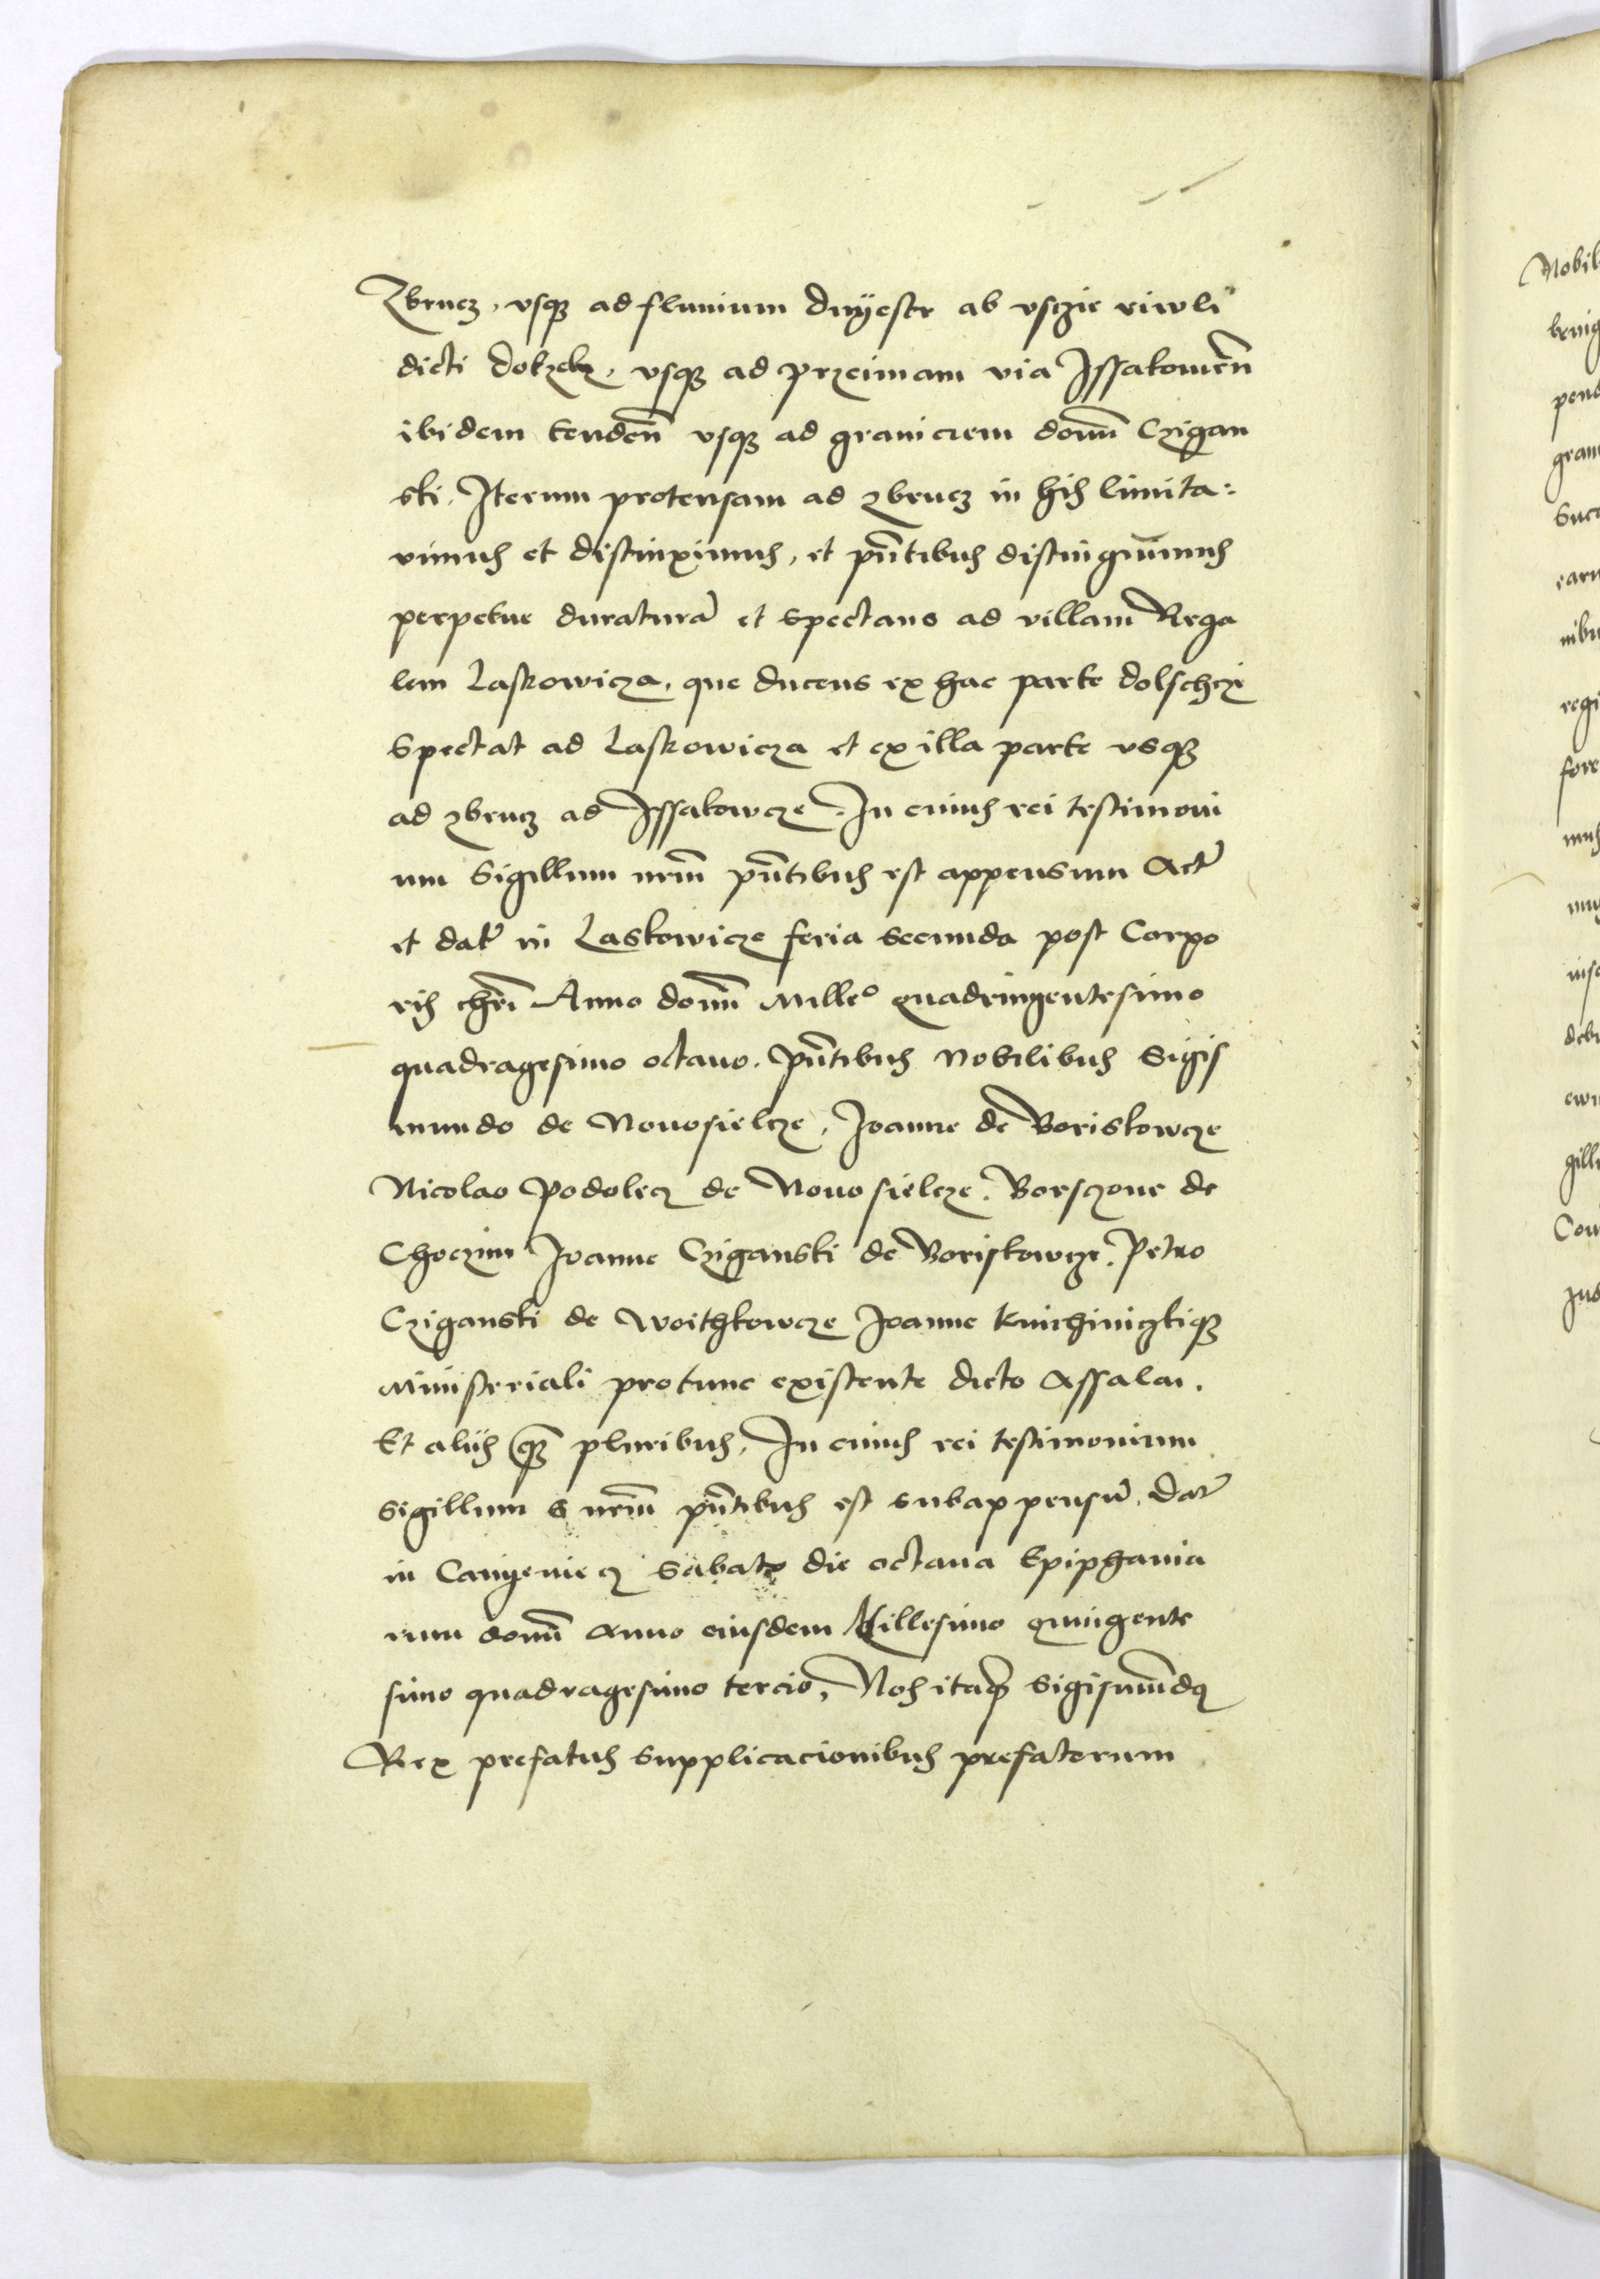 Zbrucz, vsqꝫ ad fluuium dnÿestr ab vsczie riwli
dicti dolzek, vsqꝫ ad przeimam via Issakowien̄
ibidem tenden̄ vsqꝫ ad graniciem domī Czigan
ski. Iterum protensam ad zbrucz in his limita-
uimus et distinximus, et pn̄tibus distinguimus
perpetue duraturā et spectans ad villam Rega
lem Laskowicza, que ducens ex hac parte dolschezi
spectat ad Laskowicza et ex illa parte vsqꝫ
ad zbrucz ad Issakowcze. In cuius rei testimoni
um sigillum nrm̄ pn̄tibus est appensum Act̄
et dat̄ in Laskowicze feria secunda post Corpo
ris chri̅ Anno domī Milleº quadringentesimo
quadragesimo octauo. pn̄tibus Nobilibus Sigis
mundo de Nouosielcze, Joanne de Boriskowcze
Nicolao Podolecz de Nouosielcze. Borsczone de
Choczim Joanne Cziganski de Boriskowcze. Petro
Cziganski de Woithkowcze Joanne
Ministeriali protunc existente dicto Assalai.
Et alijs qꝫ pluribus, In cuius rei testimonium
sigillum s nrm̄ pn̄tibus est subappensū. Dat̄
in Camyeniecz Sabato die octaua Epiphania
rum domī Anno eiusdem Millesimo quingente
simo quadragesimo tercio, Nos itaqꝫ Sigismūdꝰ
Rex prefatus supplicacionibus prefatorum